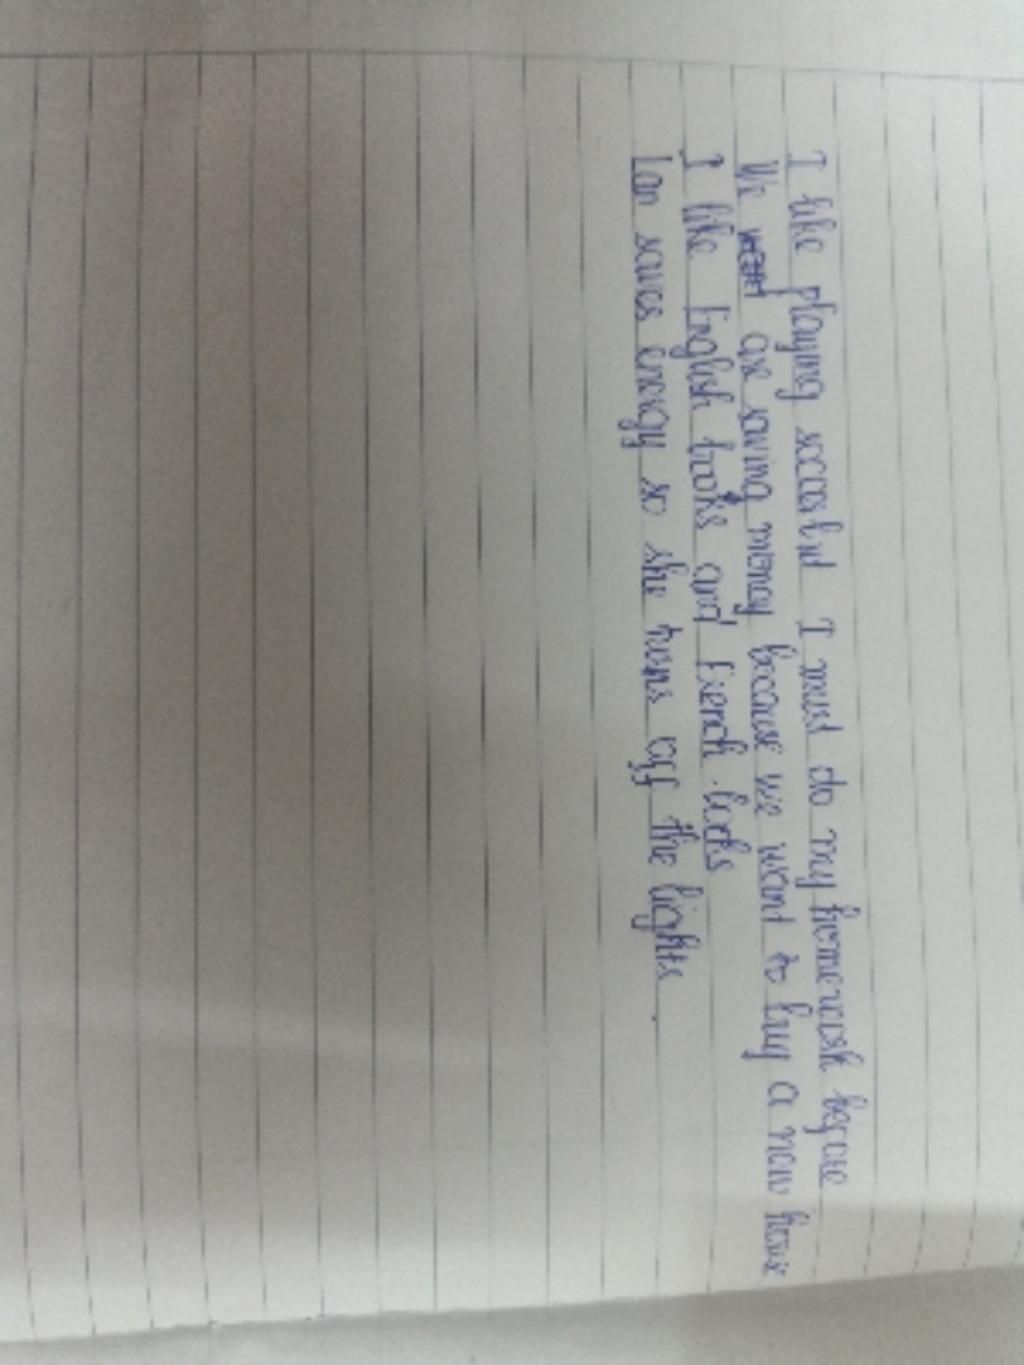 I like playing soccer but I must do my homework before
We are saving money because we want to buy a new hous
I like English books and French books
Lan saves energy so she turns off the lights.